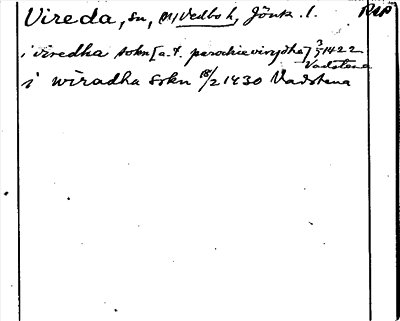 Vireda, sn, (N) Vedbo h, Jönk. l. RAP
i viredha sokn [a.t. parochie virydha] 3/3 1422 Vadstena
i wiradha sokn 18/2 1430 Vadstena